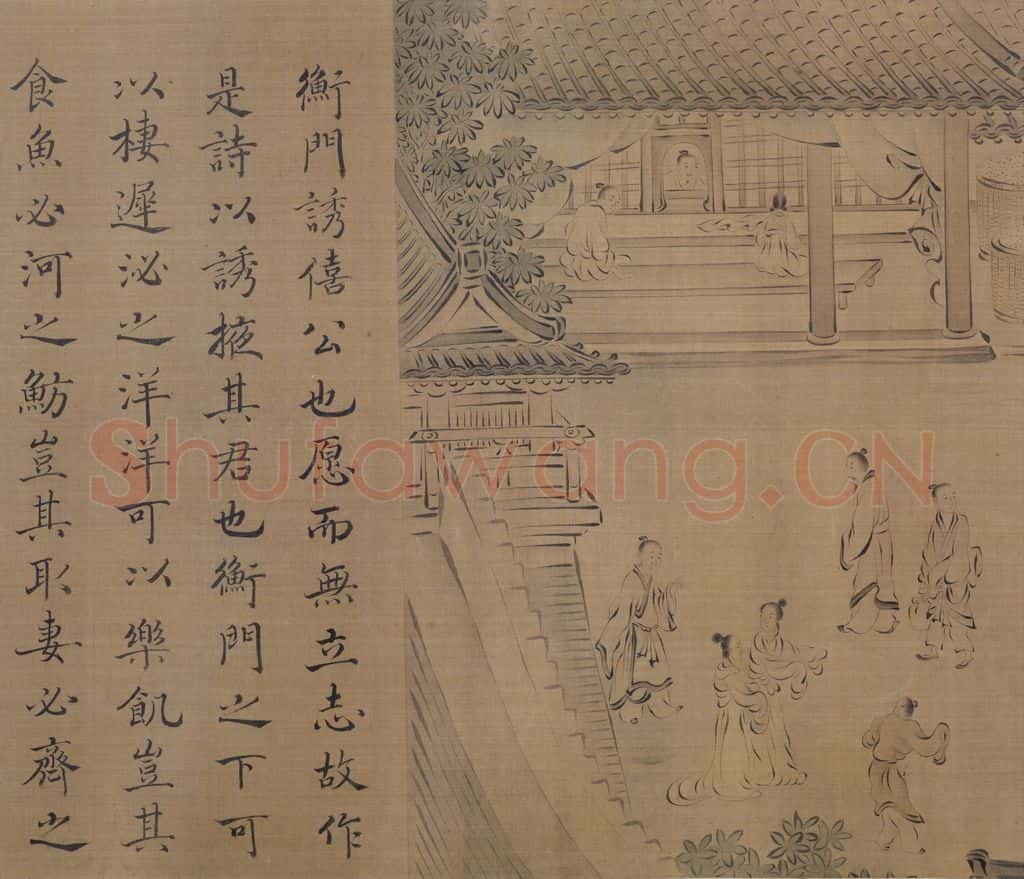 衡門誘僖公也愿而無立志故作
是詩以誘掖其君也衡門之下可
以棲遲泌之洋洋可以樂飢豈其
食魚必河之魴豈其取妻必齊之
Shufawang.CN